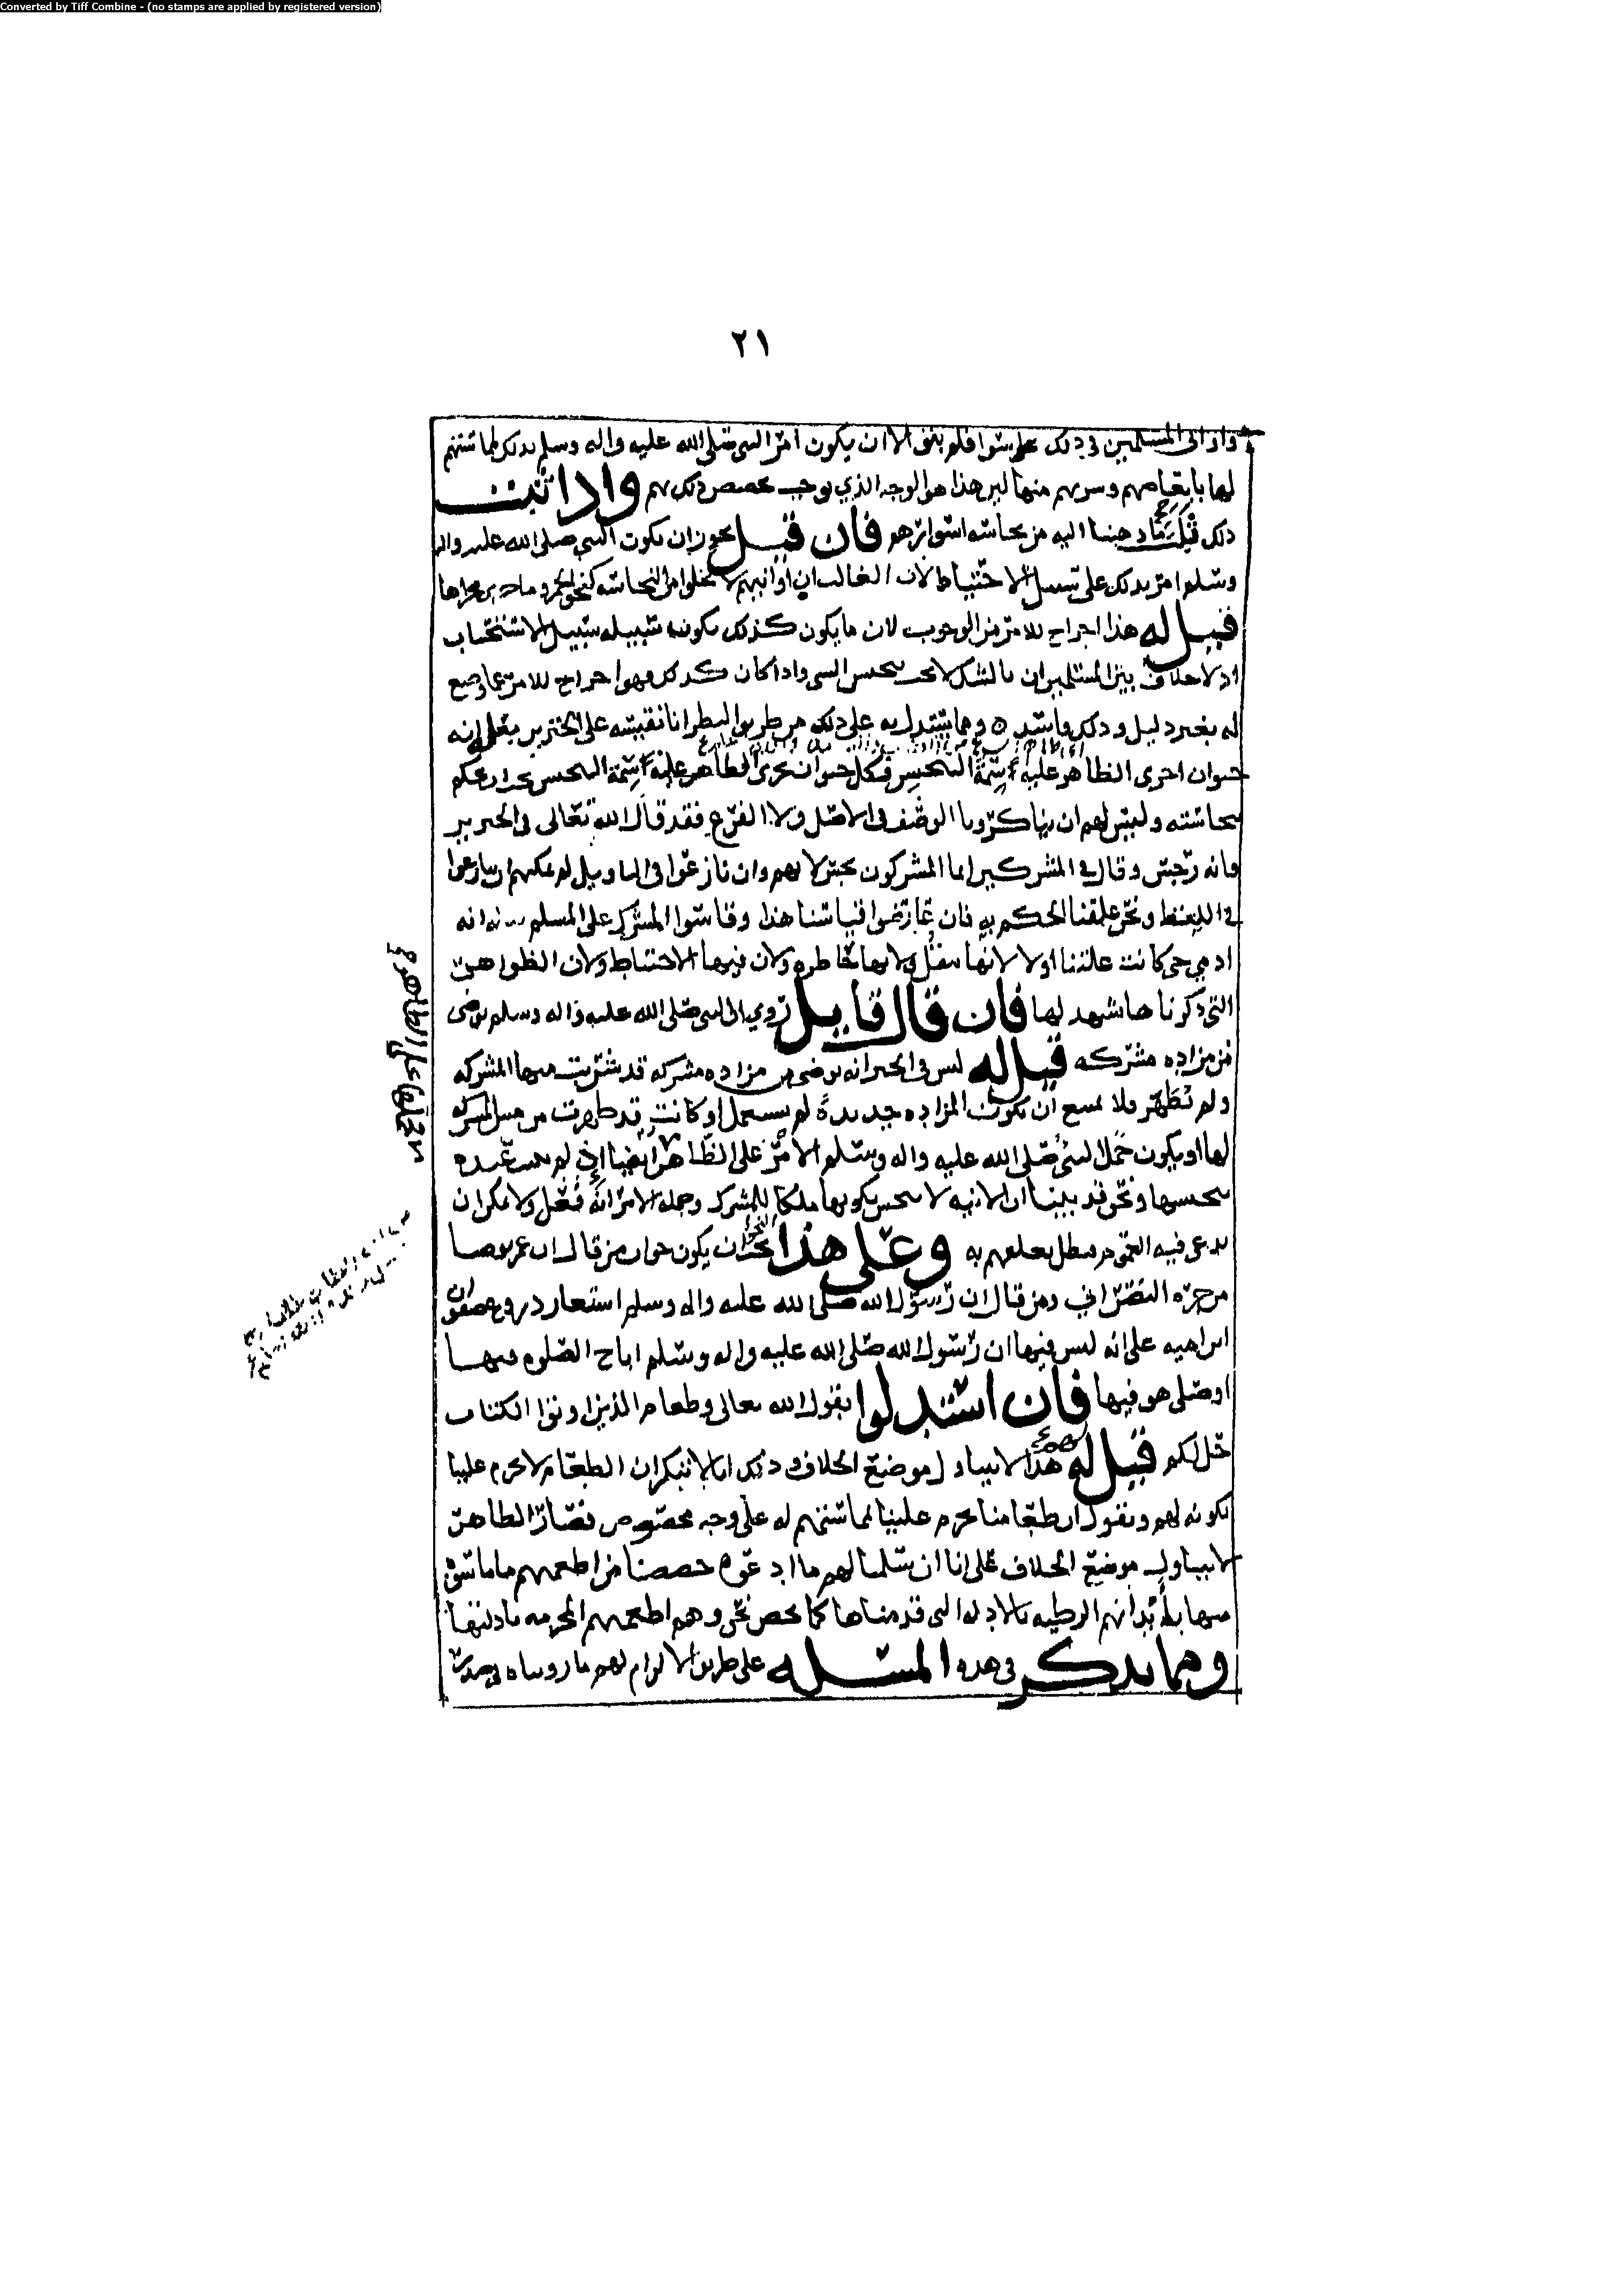 Converted by Tiff Combine - (no stamps are applied by registered version)
٢١
واواني المسلمين في ذلك على سوا فلم يبق الا ان يكون امر النبي صلى الله عليه واله وسلم بذلك لمماستهم
لها وسربهم منها ليس هذا هو الوجه الذي يوجب ذلك بهم واذا ثبت
ذلك ثبت ما ذهبنا اليه من نجاسة اسوارهم فان قيل يجوز ان يكون النبي صلى الله عليه واله
وسلم امر بذلك على سبيل الاحتياط لان الغالب ان اوانيهم لا تخلوا من النجاسة كنحو الخمر وما جرى مجراها
قيل له هذا اخراج للامر من الوجوب لان ما يكون كذلك يكون سبيله سبيل الاستحباب
اذ لا خلاف بين المسلمين ان بالشك لا يجب تنجيس الشي واذا كان كذلك فهو اخراج للامر عما وضع
له بغير دليل وذلك فاسد ٥ ومما يستدل به على ذلك من طريق النظر انا نقيسه على الخنزير بعلة انه
حيوان اجرى الظاهر عليه سمة التنجيس فكل حيوان جرى الظاهر عليه سمة التنجيس يجب ان يحكم
بنجاسته وليس لهم ان يناكرونا الوصف في الاصل ولا الفرع فقد قال الله تعالى في الخنزير
فانه رجس وقال في المشركين انما المشركون نجس لانهم وان نازعوا في التاويل لم يمكنهم ان ينازعوا
في اللفظ ونحن علقنا الحكم به فان عارضوا قياسنا هذا وقاسوا المشرك على المسلم انه
ادمي حي كانت علتنا اولا لانها تنقل ولانها حاظرة ولان فيها الاحتياط ولان الظواهر
التي ذكرناها تشهد لها فان قال قايل روي ان النبي صلى الله عليه واله وسلم توضى
من مزاده مشركه قيل له ليس في الخبر انه توضى من مزاده مشركه قد شربت منها المشركه
ولم تطهر ولا يمنع ان تكون المزاده جديدة لم تستعمل او كانت قد طهرت من قبل المشركه
لها او يكون حمل النبي صلى الله عليه واله وسلم الامر على الظاهر ايضا اذ لم عنده
تنجسها ونحن قد بينا ان الانيه لا تنجس بكونها ملكا للمشرك وجملة الامر انه فعل ولا يمكن ان
يدعى فيه العموم فبطل تعلقهم به وعلى هذا يجب ان يكون جواب من قال ان عمر توضا
من جره النصراني ومن قال ان رسول الله صلى الله عليه واله وسلم استعار دروع صفوان
على انه ليس فيها ان رسول الله صلى الله عليه واله وسلم اباح الصلوه فيها
او صلى هو فيها فان استدلوا بقول الله تعالى وطعام الذين اوتوا الكتاب
حل لكم قيل لهم هذا لا يتناول موضع الخلاف وذلك انا لا ننكر ان الطعام لا يحرم علينا
بكونه لهم ونقول ان طعامنا يحرم علينا لمماستهم له على وجه مخصوص فصار الظاهر
لا يتناول موضع الخلاف على انا ان سلمنا لهم ما ادعوه خصصنا من اطعمتهم ما ماسوه
منها بابدانهم الرطبه بالادله التي قدمناها كما نخص نحن وهم اطعمتهم المحرمه بادلتها
ومما يذكر في هذه المسله على طريق الالزام لهم ما رويناه في صدر